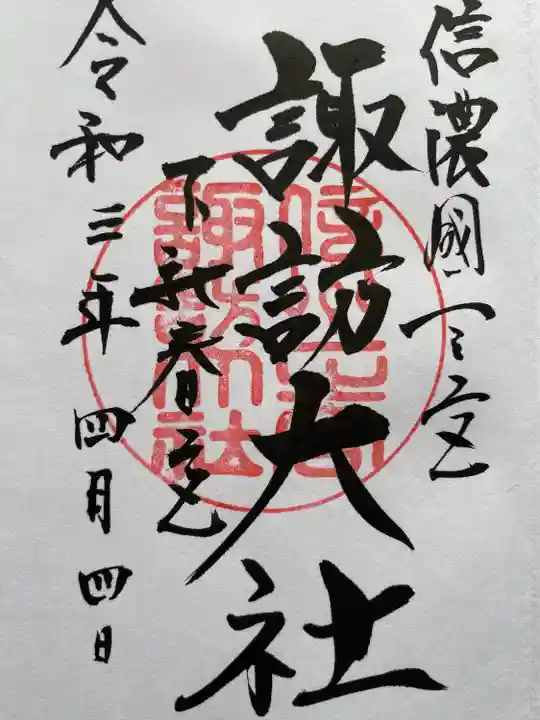 信濃國一之宮
諏訪大社
下社春宮
令和三年 四月 四日